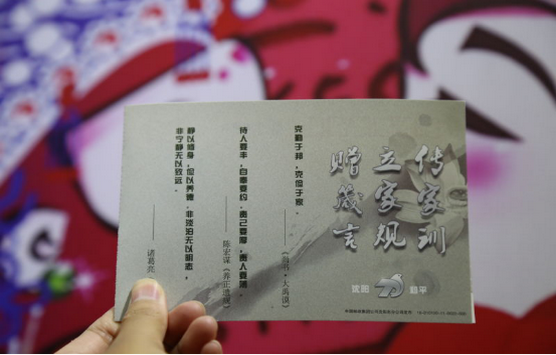 传家训
立家规
赠箴言
克勤于邦,克俭于家。
——《尚书·大禹谟》
待人要丰,自奉要约,责己要厚,责人要薄。
——陈宏谋《养正遗规》
静以修身,俭以养德,非淡泊无以明志,
非宁静无以致远。
——诸葛亮
沈阳 和平